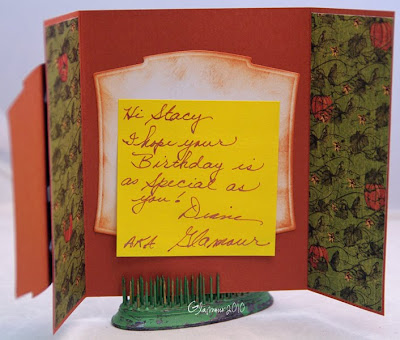 Hi Stacy
I hope your
Birthday is
as special as
you! Diane
AKA Glamour
Glamour 2010